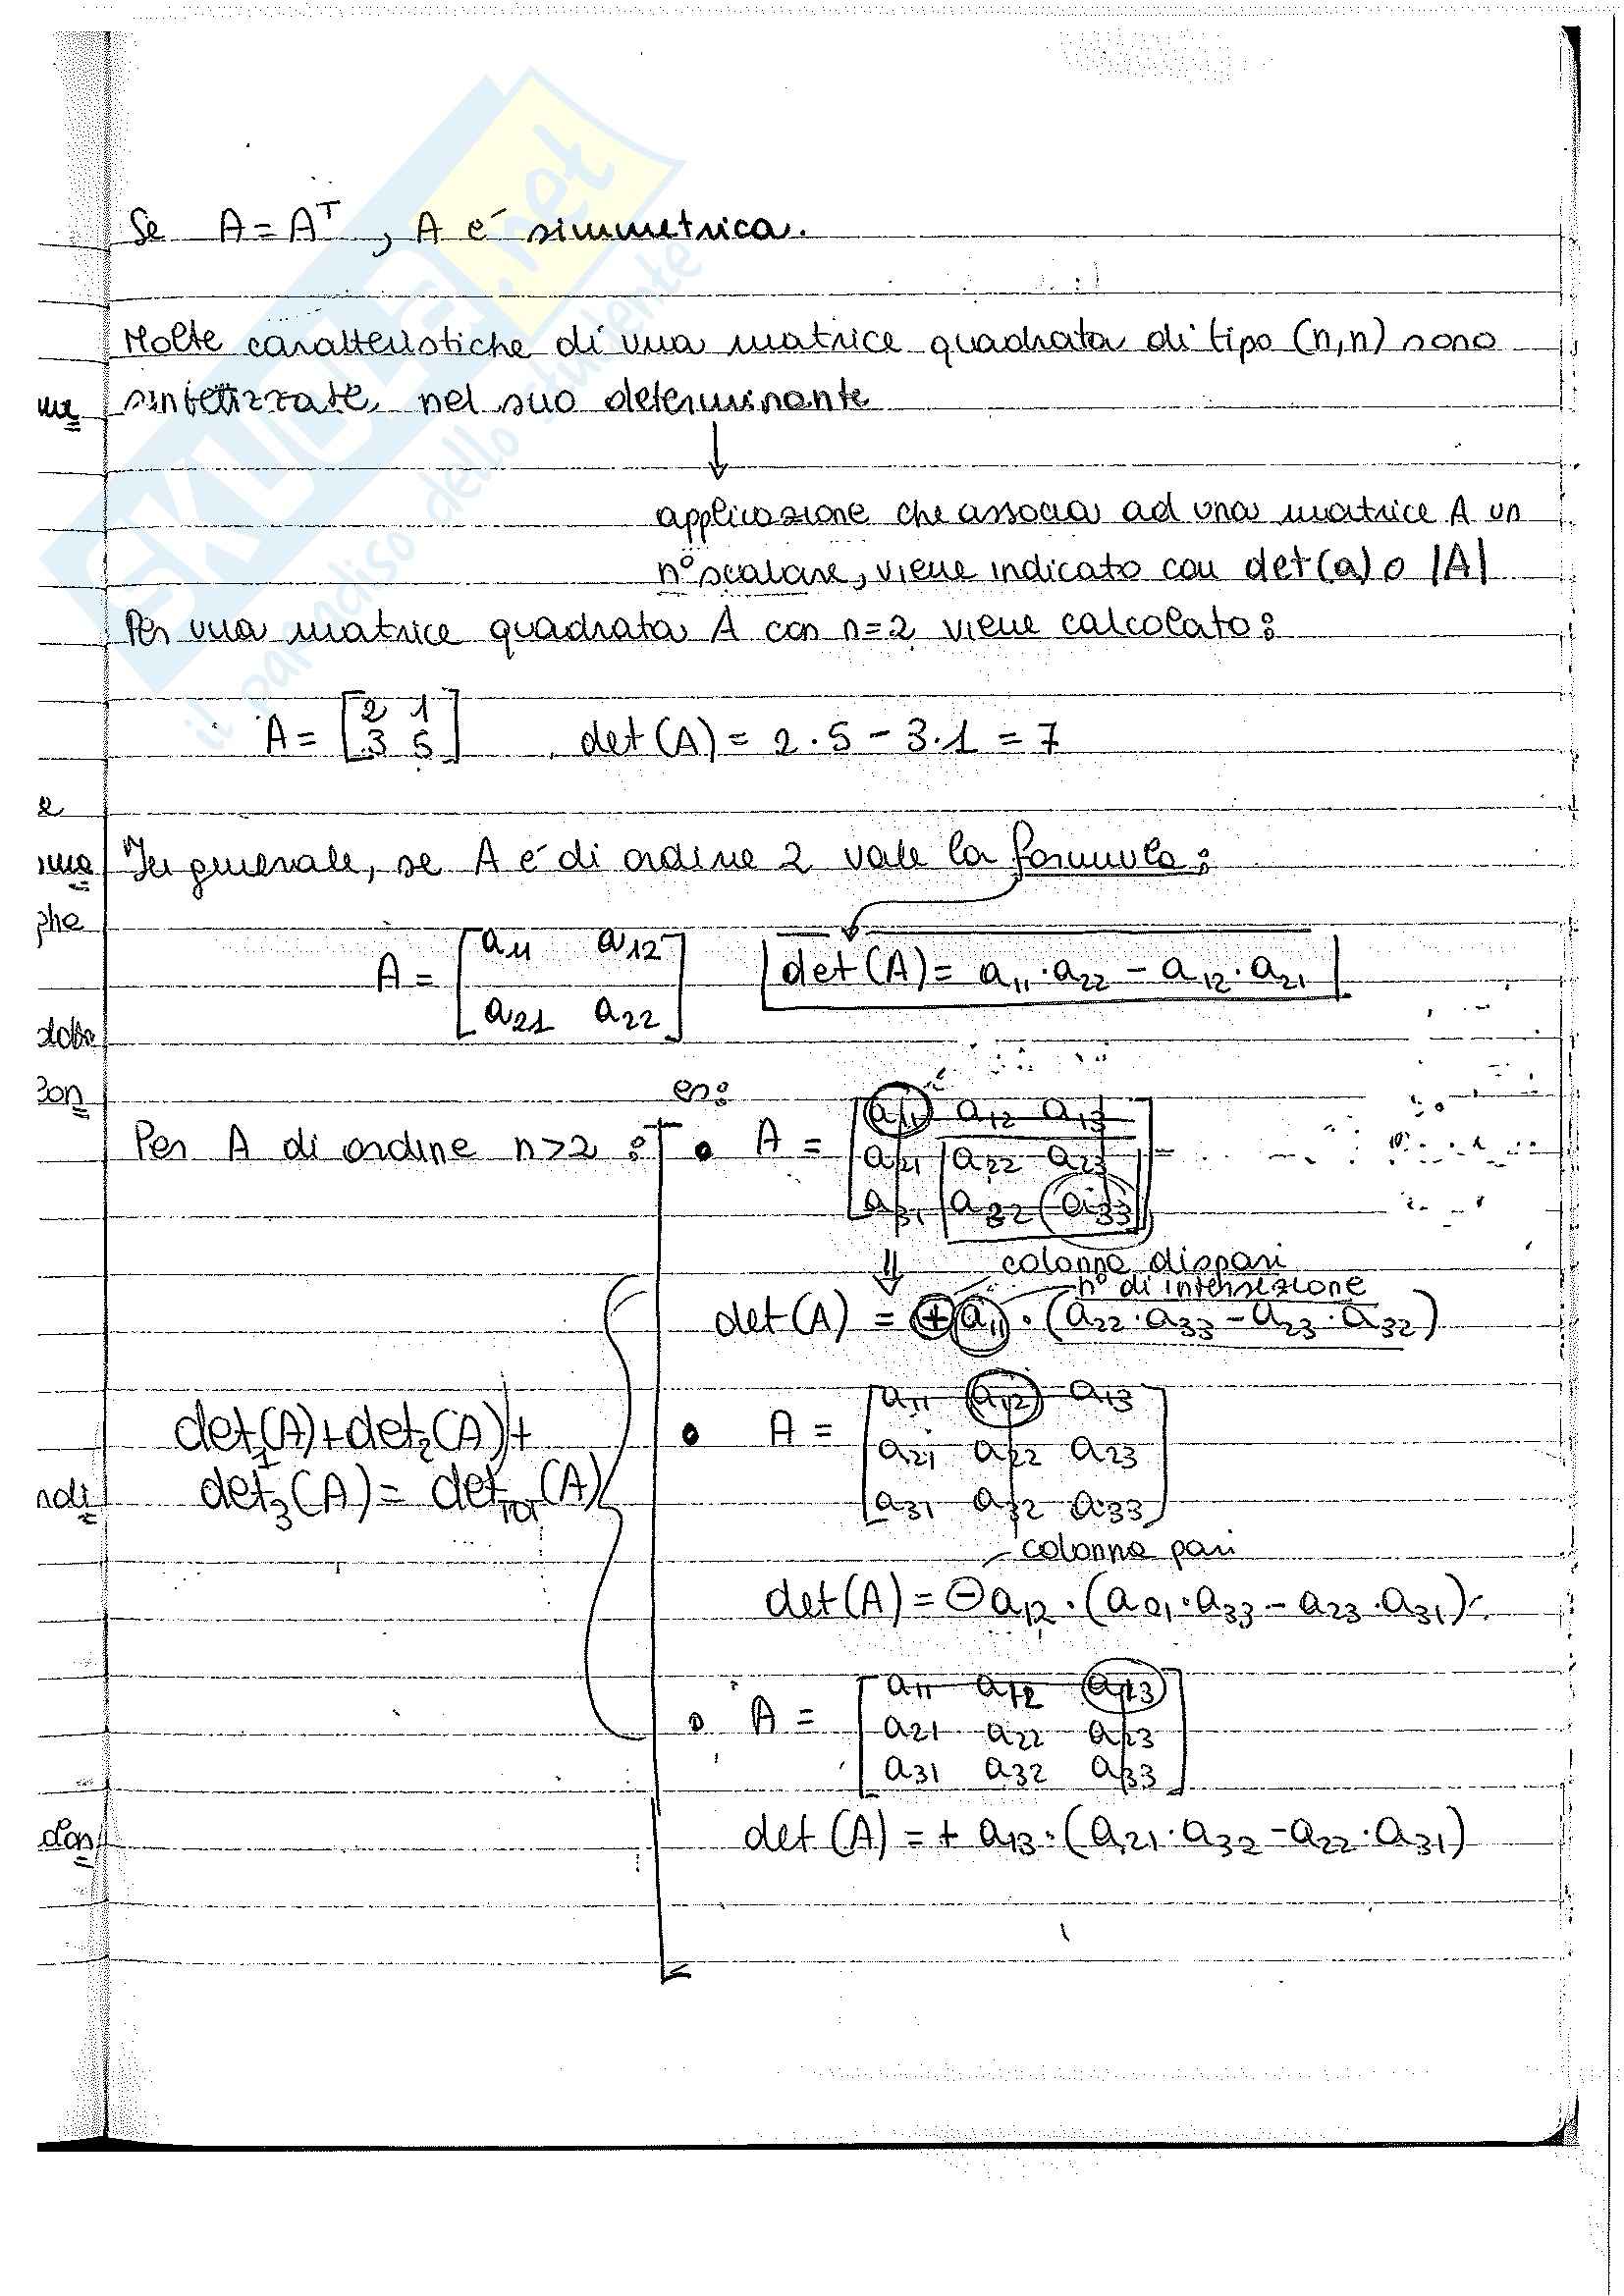 Se A = Aᵀ, A é simmetrica.
Molte caratteristiche di una matrice quadrata di tipo (n,n) sono
sintetizzate nel suo determinante
↓
applicazione che associa ad una matrice A un
n° scalare, viene indicato con det(a) o |A|
Per una matrice quadrata A con n=2 viene calcolato:
A = [2 1
3 5] det(A) = 2·5 - 3·1 = 7
In generale, se A é di ordine 2 vale la formula:
A = [a11 a12
a21 a22] det(A) = a11·a22 - a12·a21
es:
Per A di ordine n>2 : • A = [a11 a12 a13
a21 a22 a23
a31 a32 a33]
⇓ colonna dispari
n° di intersezione
det(A) = + a11·(a22·a33 - a23·a32)
• A = [a11 a12 a13
a21 a22 a23
a31 a32 a33]
det1(A)+det2(A)+
det3(A) = detTOT(A)
colonna pari
det(A) = - a12·(a21·a33 - a23·a31)
• A = [a11 a12 a13
a21 a22 a23
a31 a32 a33]
det(A) = + a13·(a21·a32 - a22·a31)
SKUOLA.net
il paradiso dello studente